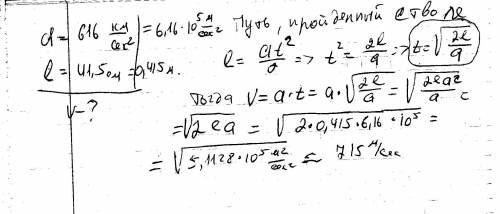 a = 616 км/сек² = 6,16·10⁵ м/сек²
l = 41,5 см = 0,415 м.
V - ?
Путь, пройденный в стволе
l = at²/2 => t² = 2l/a => t = √(2l/a)
Тогда V = a·t = a·√(2l/a) = √(2la²/a) =
= √(2la) = √(2·0,415·6,16·10⁵) =
= √(5,1128·10⁵ м²/сек²) ≈ 715 м/сек